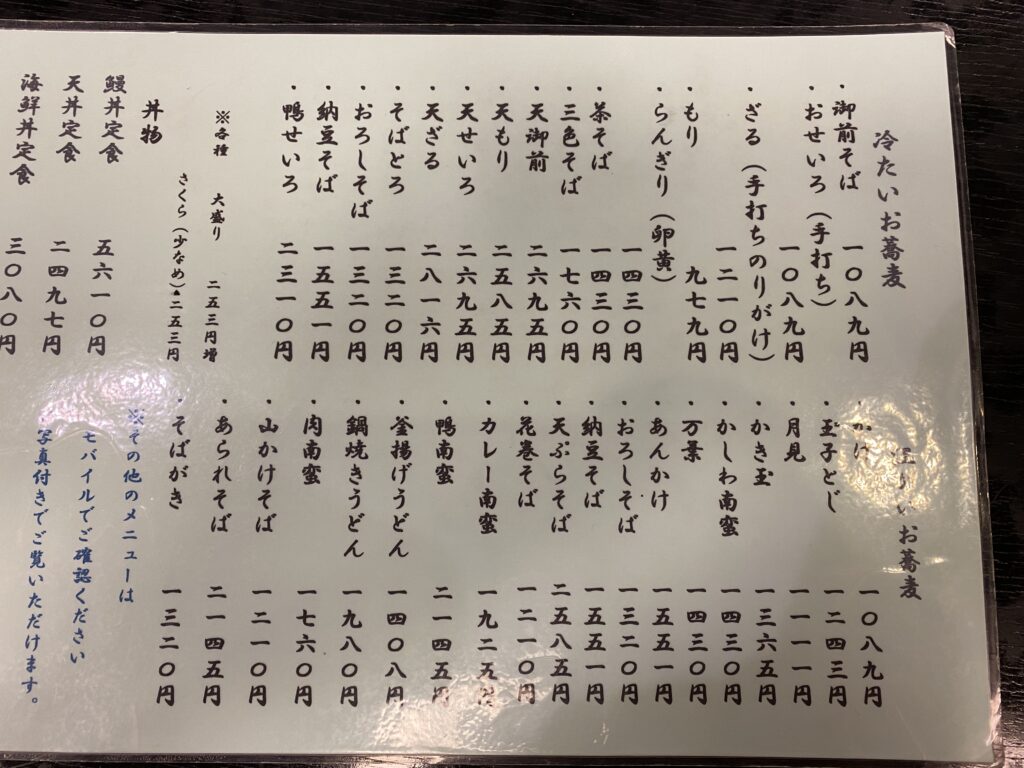 冷たいお蕎麦
・御前そば 一〇八九円
・おせいろ（手打ち） 一〇八九円
・ざる（手打ちのりがけ） 一二一〇円
・もり 九七九円
・らんぎり（卵黄） 一四三〇円
・茶そば 一四三〇円
・三色そば 一七六〇円
・天御前 二六九五円
・天もり 二五八五円
・天せいろ 二六九五円
・天ざる 二八一六円
・そばとろ 一三二〇円
・おろしそば 一三二〇円
・納豆そば 一五五一円
・鴨せいろ 二三一〇円
※各種 大盛り 二五三円増
さくら（少なめ）±二五三円
丼物
鰻丼定食 五六一〇円
天丼定食 二四九七円
海鮮丼定食 三〇八〇円
いお蕎麦
・かけ 一〇八九円
・玉子とじ 一二四三円
・月見 一一一一円
・かき玉 一三六五円
・かしわ南蛮 一四三〇円
・万葉 一四三〇円
・あんかけ 一五五一円
・おろしそば 一三二〇円
・納豆そば 一五五一円
・天ぷらそば 二五八五円
・花巻そば 一二一〇円
・カレー南蛮 一九二五円
・鴨南蛮 二一四五円
・釜揚げうどん 一四〇八円
・鍋焼きうどん 一九八〇円
・肉南蛮 一七六〇円
・山かけそば 一二一〇円
・あられそば 二一四五円
・そばがき 一三二〇円
※その他のメニューは
モバイルでご確認ください
写真付きでご覧いただけます。